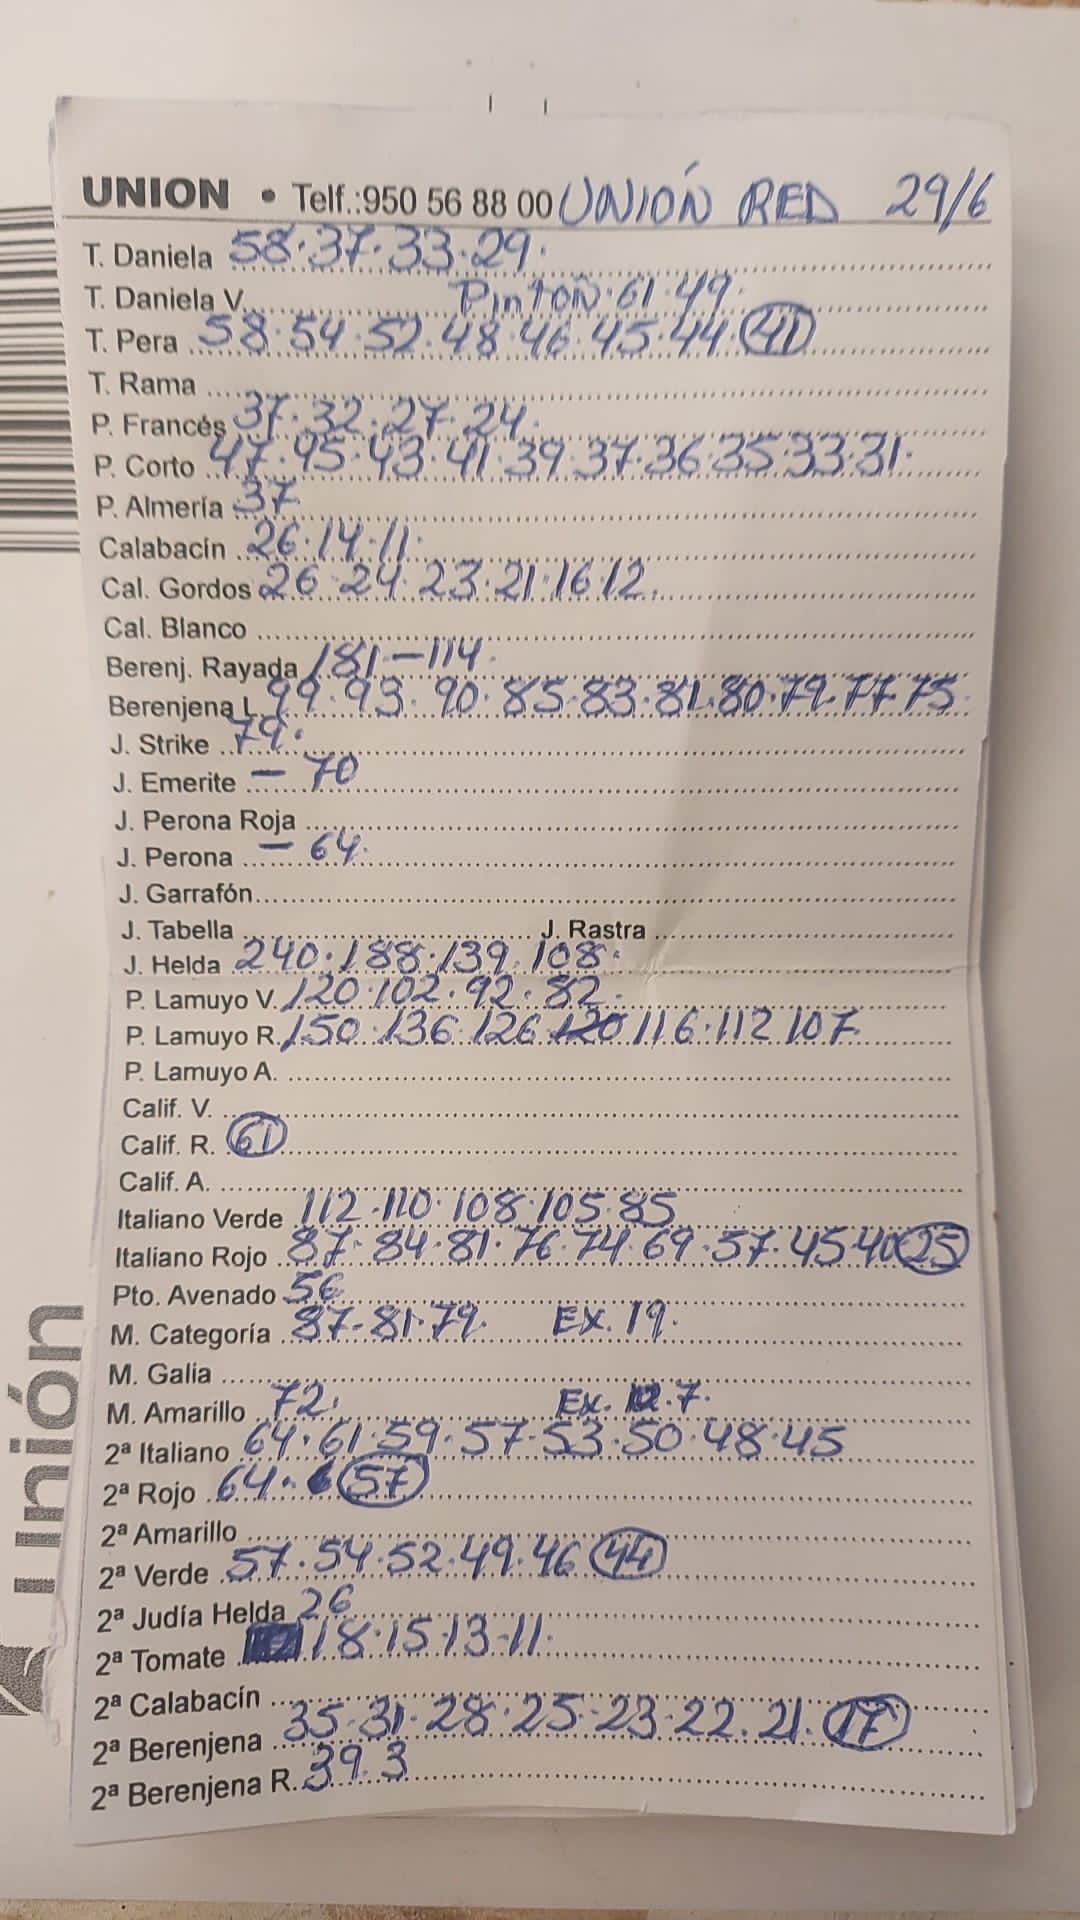 UNION • Telf.:950 56 88 00 UNIÓN RED 29/6
T. Daniela 58·37·33·29·
T. Daniela V. Pintón·61·49·
T. Pera 58·54·52·48·46·45·44 41
T. Rama
P. Francés 37·32·27·24·
P. Corto 47·45·43·41·39·37·36·35·33·31·
P. Almería 37
Calabacín 26·14·11·
Cal. Gordos 26·24·23·21·16·12.
Cal. Blanco
Berenj. Rayada 181–114·
Berenjena L. 99·93·90·85·83·81·80·79·77·75·
J. Strike 79·
J. Emerite – 70
J. Perona Roja
J. Perona – 64·
J. Garrafón
J. Tabella J. Rastra
J. Helda 240·188·139·108·
P. Lamuyo V. 120·102·92·82·
P. Lamuyo R. 150·136·126 120 116·112 107
P. Lamuyo A.
Calif. V.
Calif. R. 61
Calif. A.
Italiano Verde 112·110·108·105·85
Italiano Rojo 87·84·81·76·74·69·57·45·40 25
Pto. Avenado 56
M. Categoría 87·81·79· EX. 19·
M. Galia
M. Amarillo 72· EX. 7·
2ª Italiano 64·61·59·57·53·50·48·45
2ª Rojo 64· 57
2ª Amarillo
2ª Verde 57·54·52·49·46 44
2ª Judía Helda 26
2ª Tomate 18·15·13·11·
2ª Calabacín
2ª Berenjena 35·31·28·25·23·22·21· 17
2ª Berenjena R. 39·3
unión